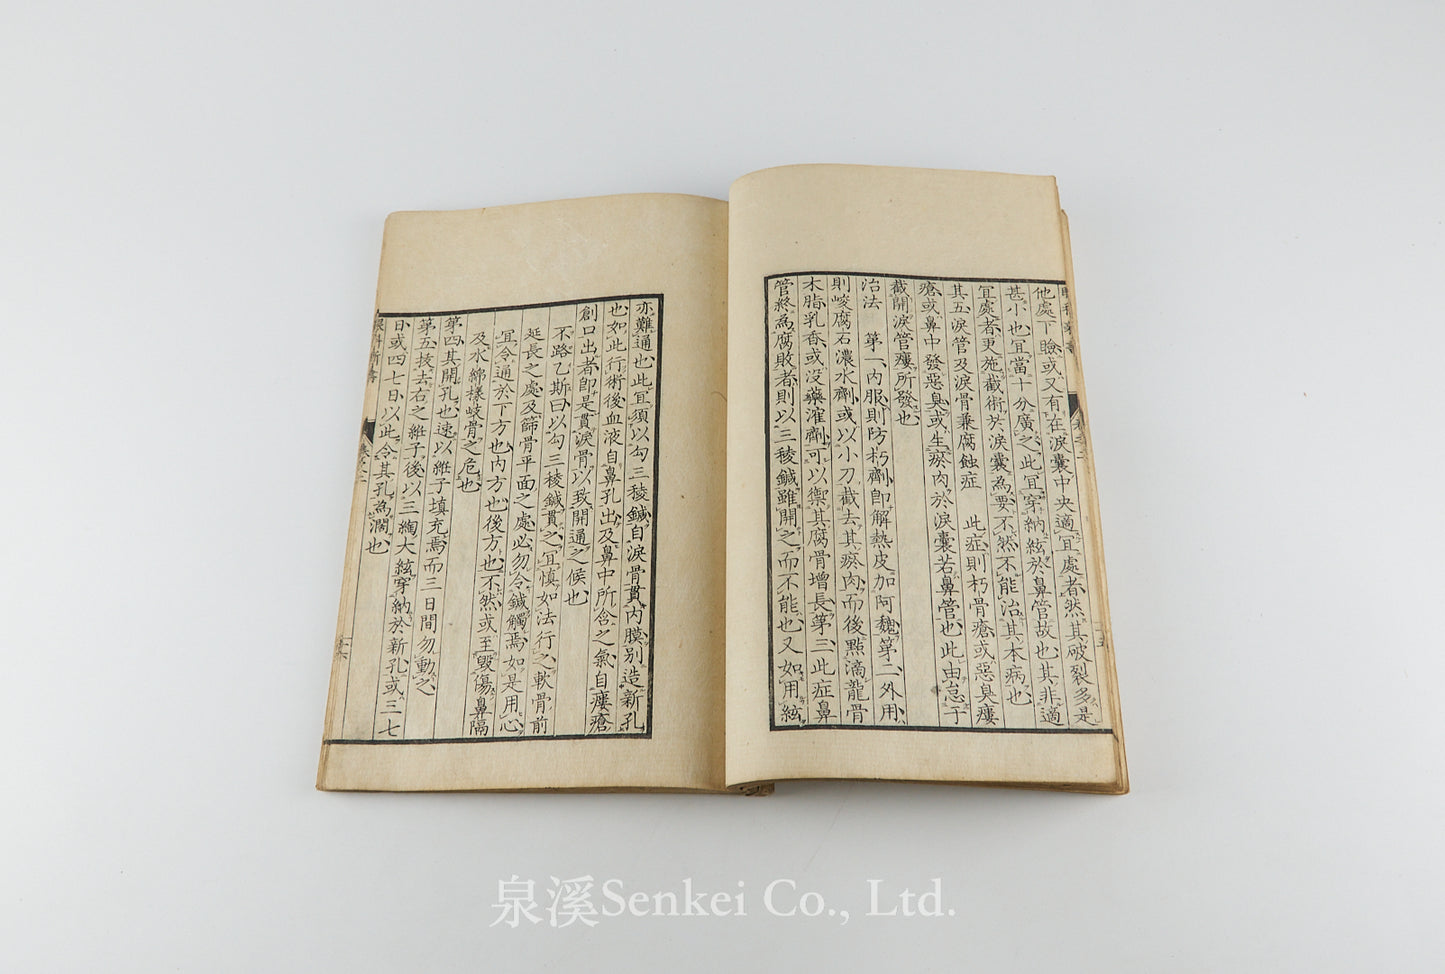 他處下瞼或又有在淚囊中央適宜處者然其破裂多是
甚小也宜當十分廣之此宜穿納絃於鼻管故也其非適
宜處者更施截術於淚囊為要不然不能治其本病也
其五淚管及淚骨兼腐蝕症 此症則朽骨瘡或惡臭瘻
瘡或鼻中發惡臭或生瘀肉於淚囊若鼻管也此由怠于
截開淚管瘻所發也
治法 第一內服則防朽劑即解熱皮加阿魏第二外用
則峻腐石濃水劑或以小刀截去其瘀肉而後點滴龍骨
木脂乳香或沒藥濯劑可以禦其腐骨增長第三此症鼻
管終為腐敗者則以三稜鍼雖開之而不能也又如用絃
亦難通也此宜須以勾三稜鍼自淚骨貫內膜別造新孔
也如此行術後血液自鼻孔出及鼻中所含之氣自瘻瘡
創口出者即是貫淚骨以致開通之候也
不路乙斯曰以勾三稜鍼貫之宜慎如法行之軟骨前
延長之處及篩骨平面之處必勿令鍼觸焉如是用心
宜令通於下方也內方也後方也不然或至毀傷鼻隔
及水綿樣岐骨之危也
第四其開孔也速以絍子填充焉而三日間勿動之
第五拔去右之絍子後以三綯大絃穿納於新孔或三七
日或四七日以此令其孔為濶也
眼科新書
卷之三
十六
泉溪Senkei Co., Ltd.